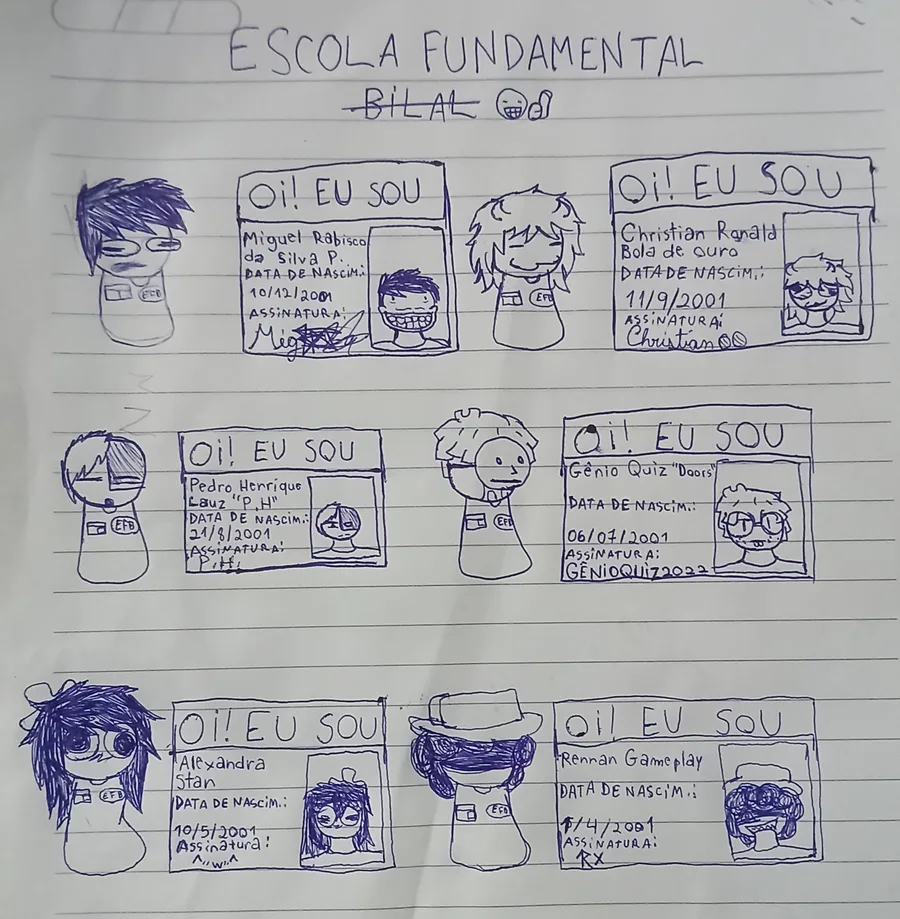 ESCOLA FUNDAMENTAL
BiLAL
EFB
Oi! EU SOU
Miguel Rabisco
da Silva P.
DATA DE NASCiM.:
10/12/2001
ASSiNATURA:
Mig
EFB
Oi! EU SOU
Christian Ronald
Bola de ouro
DATA DE NASCiM.:
11/9/2001
ASSiNATURA:
Christian
EFB
Oi! EU SOU
Pedro Henrique
Lauz "P.H"
DATA DE NASCiM.:
21/8/2001
ASSiNATURA:
P.H.
EFB
Oi! EU SOU
Gênio Quiz "Doors"
DATA DE NASCiM.:
06/07/2001
ASSiNATURA:
GÊNiOQUiZ2022
EFB
Oi! EU SOU
Alexandra
Stan
DATA DE NASCiM.:
10/5/2001
Assinatura:
^,,w,,^
EFB
Oi! EU SOU
Rennan Gameplay
DATA DE NASCiM.:
1/4/2001
ASSiNATURA:
RX